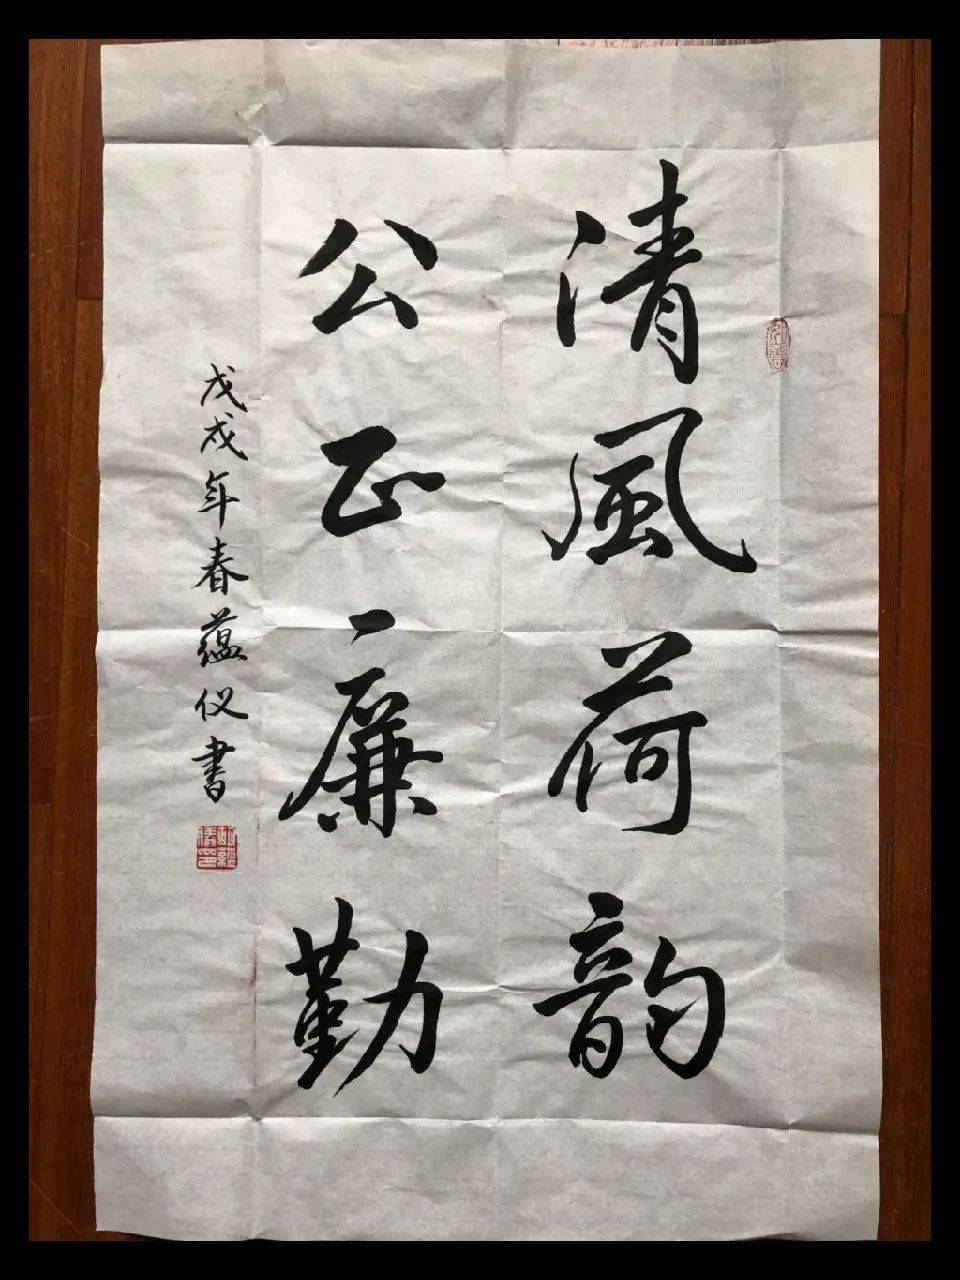 清風荷韵
公正廉勤
戊戌年春蕴仪书